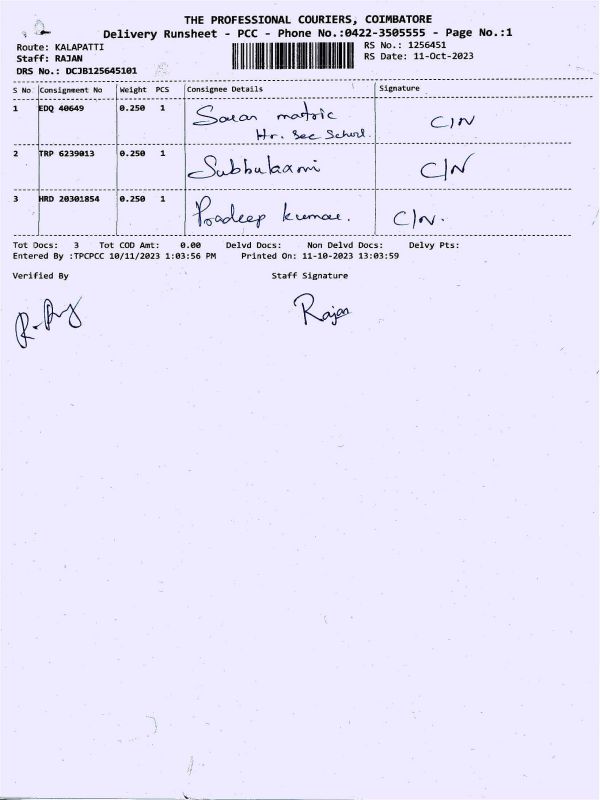 THE PROFESSIONAL COURIERS, COIMBATORE
Delivery Runsheet - PCC - Phone No.:0422-3505555 - Page No.:1
Route: KALAPATTI RS No.: 1256451
Staff: RAJAN RS Date: 11-Oct-2023
DRS No.: DCJB125645101
S No Consignment No Weight PCS Consignee Details Signature
1 EDQ 40649 0.250 1 Saran matric C/N
Hr. Sec School.
2 TRP 6239013 0.250 1 Subbulaxmi C/N
3 HRD 20301854 0.250 1 Pradeep kumar. C/N.
Tot Docs: 3 Tot COD Amt: 0.00 Delvd Docs: Non Delvd Docs: Delvy Pts:
Entered By :TPCPCC 10/11/2023 1:03:56 PM Printed On: 11-10-2023 13:03:59
Verified By Staff Signature
Rajan